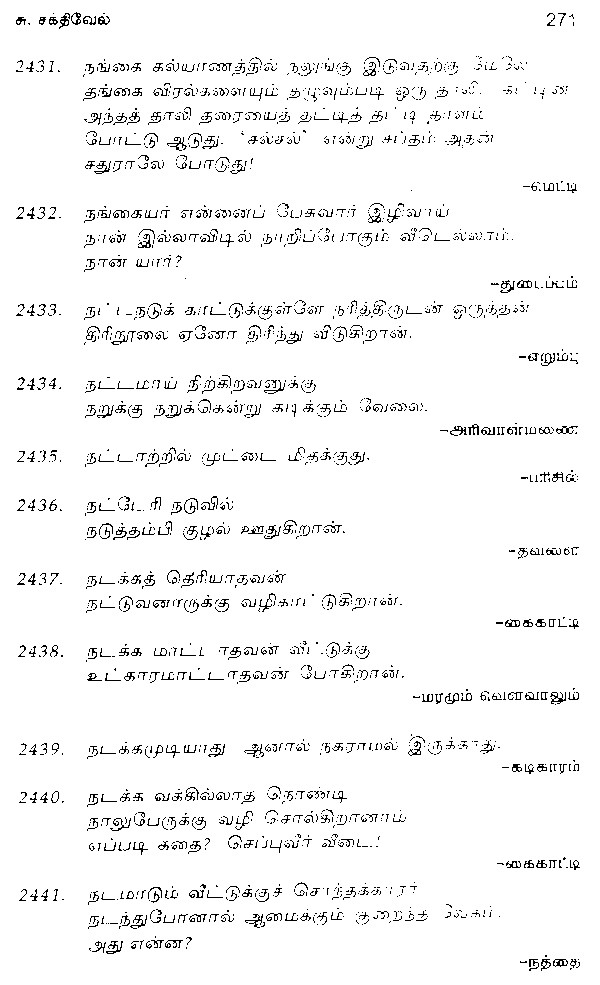 சு. சக்திவேல் 271
2431. நங்கை கல்யாணத்தில் நலுங்கு இடுவதற்கு மேலே
தங்கை விரல்களையும் தழுவும்படி ஒரு தாலி. கட்டின
அந்தத் தாலி தரையைத் தட்டித் தட்டி தாளம்
போட்டு ஆடுது. 'சல்சல்' என்று சப்தம் அதன்
சதுராலே போடுது!
–மெட்டி
2432. நங்கையர் என்னைப் பேசுவார் இழிவாய்
நான் இல்லாவிடில் நாறிப்போகும் வீடெல்லாம்.
நான் யார்?
–துடைப்பம்
2433. நட்டநடுக் காட்டுக்குள்ளே நரித்திருடன் ஒருத்தன்
திரிநூலை ஏனோ திரிந்து விடுகிறான்.
–எறும்பு
2434. நட்டமாய் நிற்கிறவனுக்கு
நறுக்கு நறுக்கென்று கடிக்கும் வேலை.
–அரிவாள்மணை
2435. நட்டாற்றில் முட்டை மிதக்குது.
–பரிசில்
2436. நட்டேரி நடுவில்
நடுத்தம்பி குழல் ஊதுகிறான்.
–தவளை
2437. நடக்கத் தெரியாதவன்
நட்டுவனாருக்கு வழிகாட்டுகிறான்.
–கைகாட்டி
2438. நடக்க மாட்டாதவன் வீட்டுக்கு
உட்காரமாட்டாதவன் போகிறான்.
–மரமும் வௌவாலும்
2439. நடக்கமுடியாது ஆனால் நகராமல் இருக்காது.
–கடிகாரம்
2440. நடக்க வக்கில்லாத நொண்டி
நாலுபேருக்கு வழி சொல்கிறானாம்
எப்படி கதை? செப்புவீர் விடை!
–கைகாட்டி
2441. நடமாடும் வீட்டுக்குச் சொந்தக்காரர்
நடந்துபோனால் ஆமைக்கும் குறைந்த வேகம்.
அது என்ன?
–நத்தை